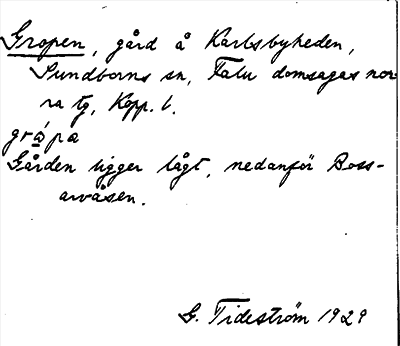 Gropen, gård å Karlsbyheden,
Sundborns sn, Falu domsagas nor
ra tg, Kopp. l.
grá̱pa
Gården ligger lågt, nedanför Boss-
arvåsen.
G. Tideström 1929